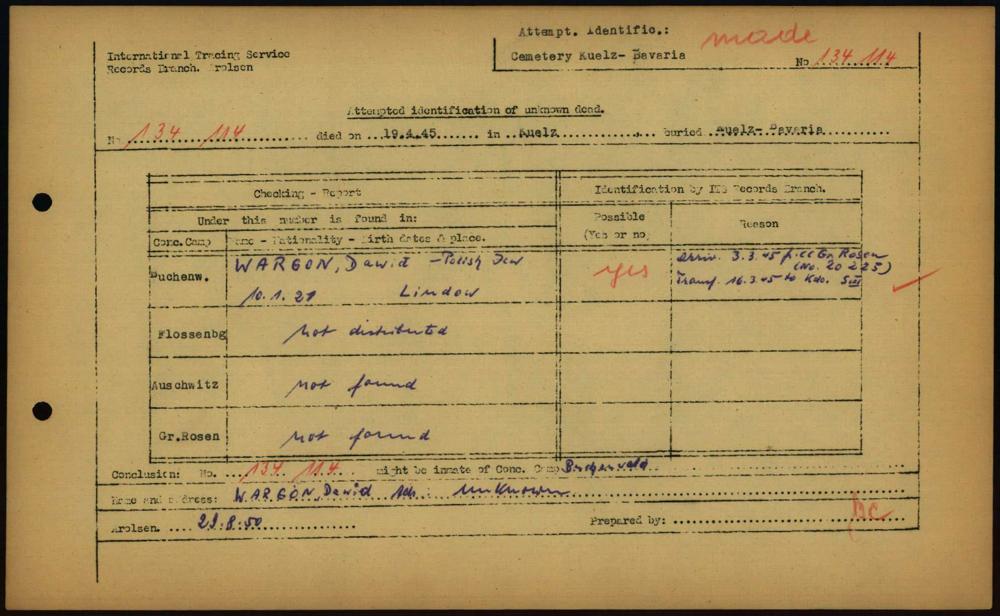 Attempt. Identific.: made
International Tracing Service
Records Branch. Arolsen
Cemetery Kuelz- Bavaria
No 134 114
Attempted identification of unknown dead.
No 134 114 died on ...19.4.45....... in ..Kuelz........... buried Kuelz- Bavaria..........
Checking - Report
Identification by ITS Records Branch.
Under this number is found in:
Possible
(Yes or no)
Reason
Conc.Camp
Name - Nationality - Birth dates & place.
Buchenw.
WARGON, Dawid - Polish Jew
10.1.21 Lindow
yes
Arriv. 3.3.45 f. CC Gr. Rosen
(No. 20 225)
Transf. 16.3.45 to Kdo. SIII
Flossenbg
not distributed
Auschwitz
not found
Gr.Rosen
not found
Conclusion: No. ...134 114..... might be inmate of Conc. Camp Buchenwald
Name and address: WARGON, Dawid unknown
Arolsen. ....29.8.50..............
Prepared by: ..............